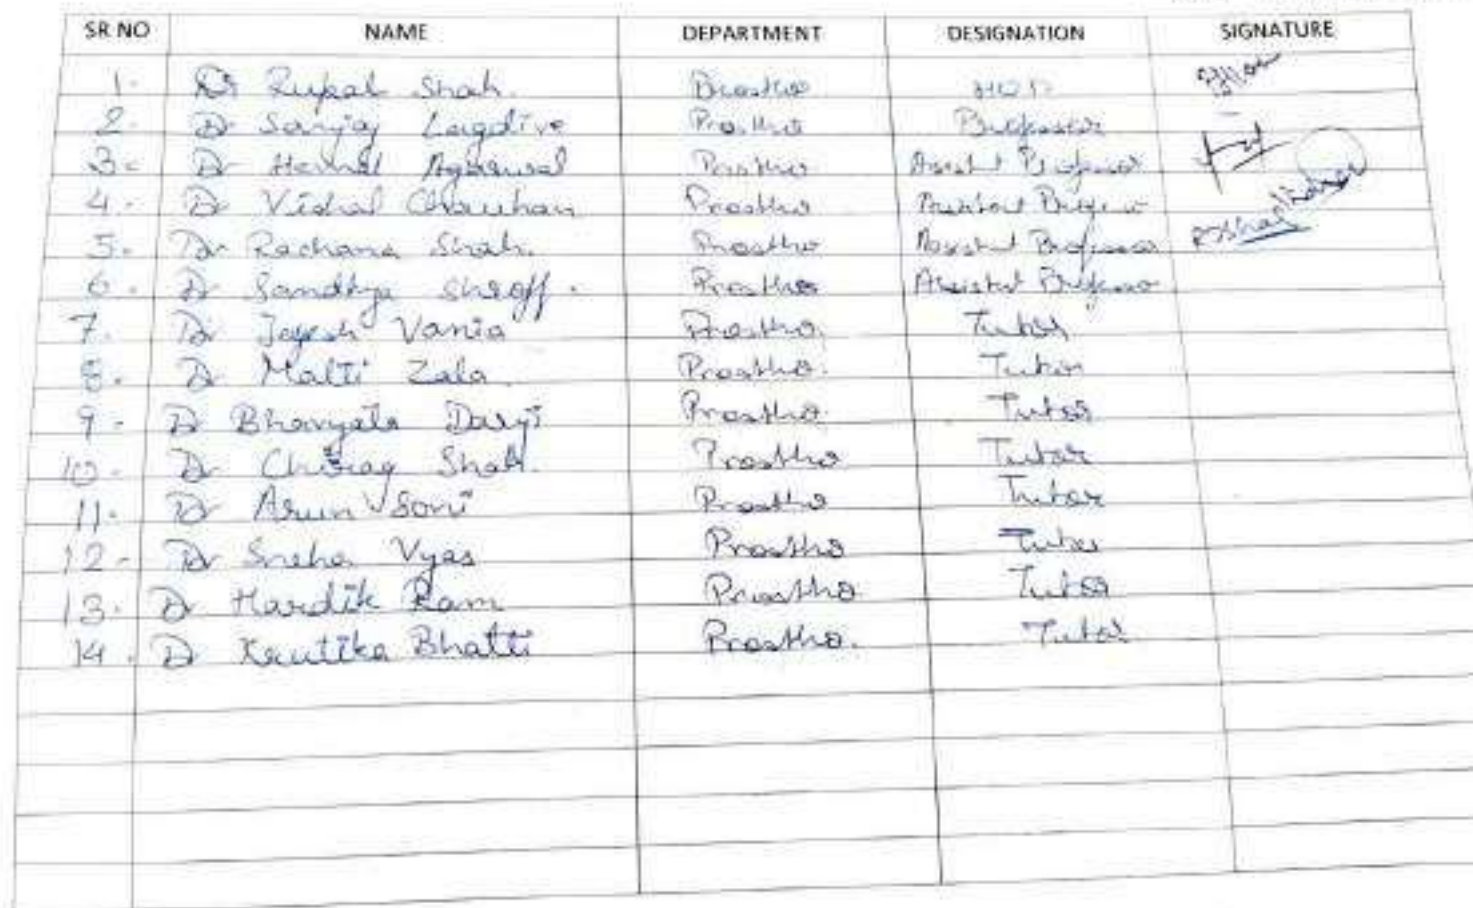 SR NO NAME DEPARTMENT DESIGNATION SIGNATURE
1. Dr Rupal Shah. Prostho HOD
2. Dr Sanjay Lagdive Prostho Professor
3. Dr Hemal Agarwal Prostho Assistant Professor
4. Dr Vishal Chauhan Prostho Assistant Professor
5. Dr Rachana Shah. Prostho Assistant Professor
6. Dr Sandhya Shroff. Prostho Assistant Professor
7. Dr Jayesh Vania Prostho. Tutor
8. Dr Malti Zala. Prostho. Tutor
9. Dr Bhavyata Darji Prostho. Tutor
10. Dr Chirag Shah. Prostho Tutor
11. Dr Arun Soni Prostho Tutor
12. Dr Sneha Vyas Prostho Tutor
13. Dr Hardik Ram Prostho Tutor
14. Dr Krutika Bhatti Prostho. Tutor